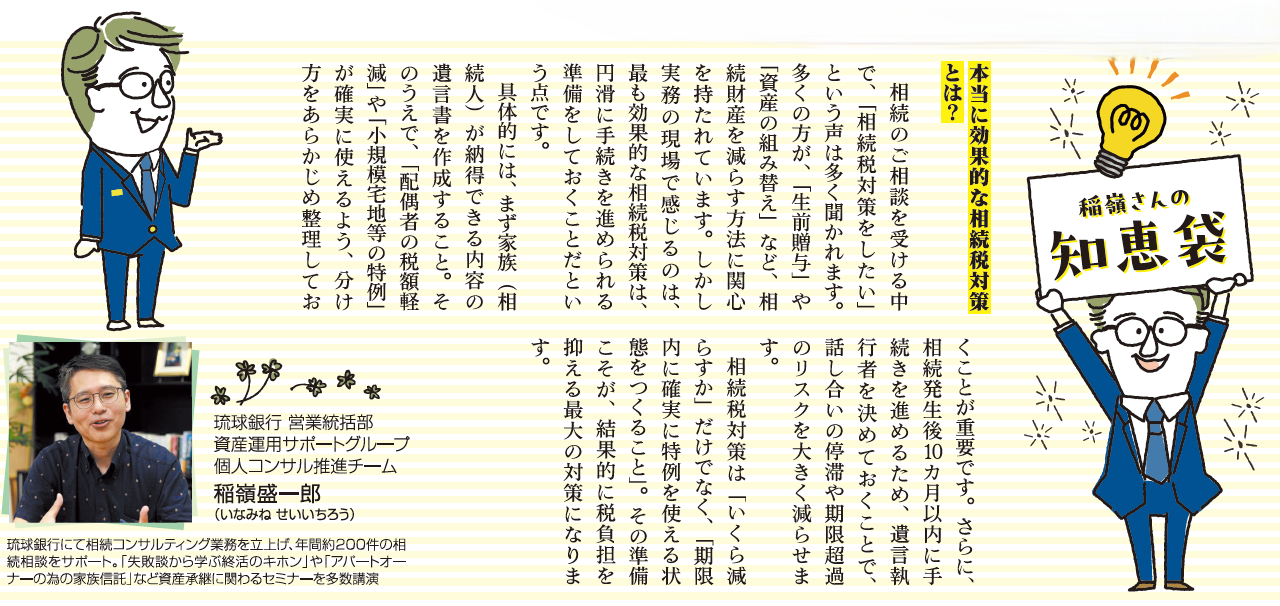 稲嶺さんの
知恵袋
本当に効果的な相続税対策
とは?
相続のご相談を受ける中
で、「相続税対策をしたい」
という声は多く聞かれます。
多くの方が、「生前贈与」や
「資産の組み替え」など、相
続財産を減らす方法に関心
を持たれています。しかし
実務の現場で感じるのは、
最も効果的な相続税対策は、
円滑に手続きを進められる
準備をしておくことだとい
う点です。
具体的には、まず家族(相
続人)が納得できる内容の
遺言書を作成すること。そ
のうえで、「配偶者の税額軽
減」や「小規模宅地等の特例」
が確実に使えるよう、分け
方をあらかじめ整理してお
くことが重要です。さらに、
相続発生後10カ月以内に手
続きを進めるため、遺言執
行者を決めておくことで、
話し合いの停滞や期限超過
のリスクを大きく減らせま
す。
相続税対策は「いくら減
らすか」だけでなく、「期限
内に確実に特例を使える状
態をつくること」。その準備
こそが、結果的に税負担を
抑える最大の対策になりま
す。
琉球銀行 営業統括部
資産運用サポートグループ
個人コンサル推進チーム
稲嶺盛一郎
(いなみね せいいちろう)
琉球銀行にて相続コンサルティング業務を立上げ、年間約200件の相
続相談をサポート。「失敗談から学ぶ終活のキホン」や「アパートオー
ナーの為の家族信託」など資産承継に関わるセミナーを多数講演